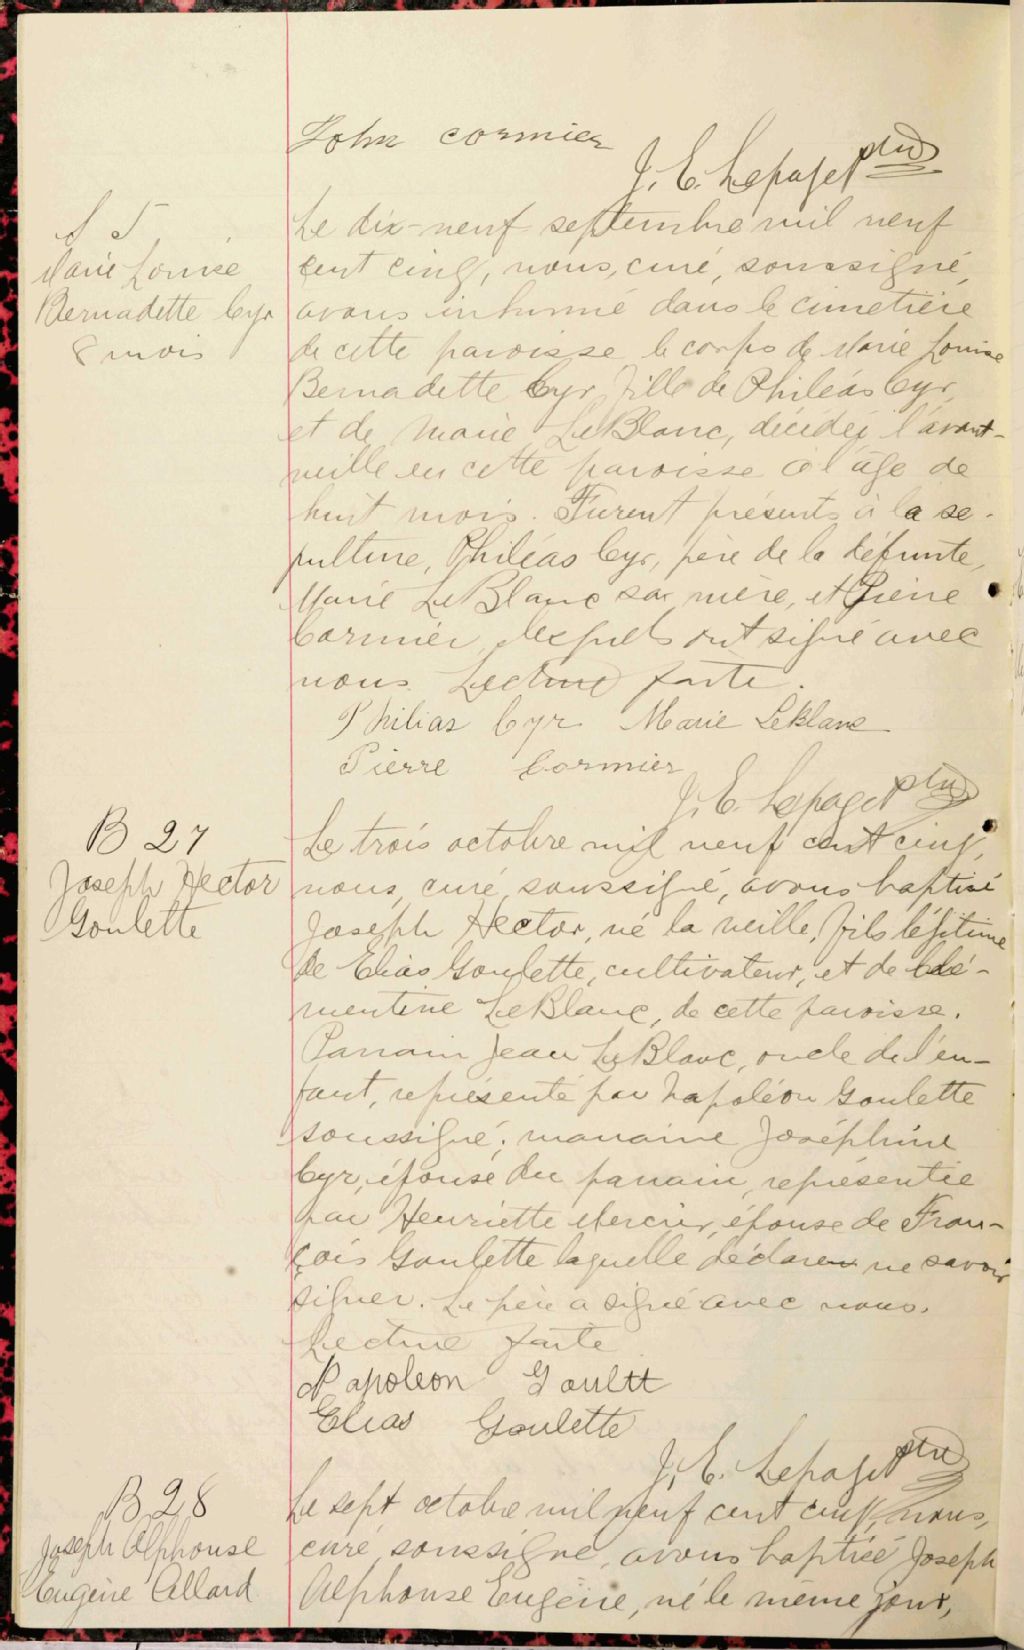 John Cormier
J. E. Lepage ptre
S 5
Marie Louise
Bernadette Cyr
8 mois
Le dix-neuf septembre mil neuf
cent cinq, nous, curé, soussigné,
avons inhumé dans le cimetière
de cette paroisse le corps de Marie Louise
Bernadette Cyr, fille de Philéas Cyr,
et de Marie LeBlanc, décédée l'avant-
veille en cette paroisse à l'âge de
huit mois. Furent présents à la sé-
pulture, Philéas Cyr, père de la défunte,
Marie LeBlanc sa mère, et Pierre
Cormier, lesquels ont signé avec
nous. Lecture faite.
Philias Cyr Marie LeBlanc
Pierre Cormier
J. E. Lepage ptre
B 27
Joseph Hector
Goulette
Le trois octobre mil neuf cent cinq,
nous, curé, soussigné, avons baptisé
Joseph Hector, né la veille, fils légitime
de Elias Goulette, cultivateur, et de Clé-
mentine LeBlanc, de cette paroisse.
Parrain Jean LeBlanc, oncle de l'en-
fant, représenté par Napoléon Goulette
soussigné; marraine Joséphine
Cyr, épouse du parrain, représentée
par Henriette Mercier, épouse de Fran-
çois Goulette laquelle déclare ne savoir
signer. Le père a signé avec nous.
Lecture faite
Napoleon Goultt
Elias Goulette
J. E. Lepage ptre
B 28
Joseph Alphonse
Eugène Allard
Le sept octobre mil neuf cent cinq nous,
curé, soussigné, avons baptisé Joseph
Alphonse Eugène, né le même jour,